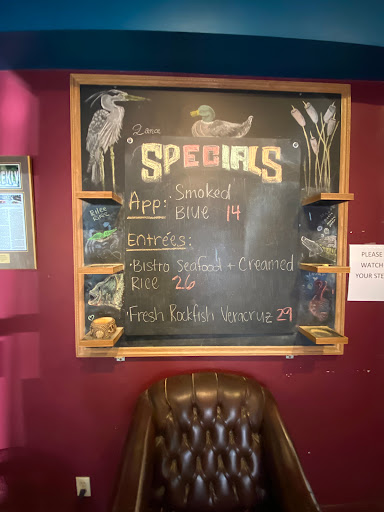 SPECIALS
App: Smoked
Blue 14
Entrées:
• Bistro Seafood + Creamed
Rice 26
• Fresh Rockfish Veracruz 29
PLEASE
WATCH
YOUR STE